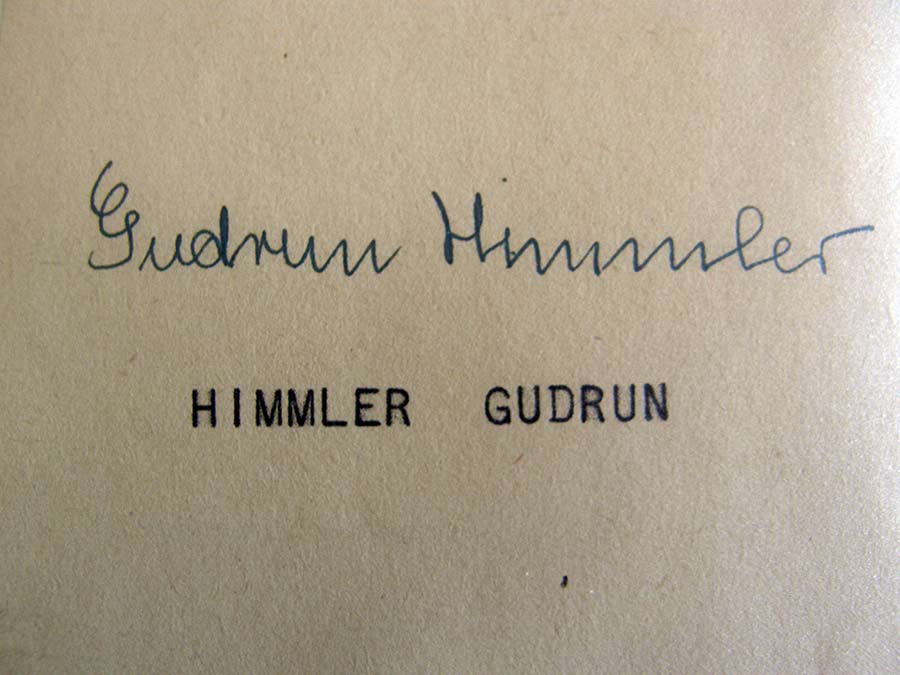 Gudrun Himmler
HIMMLER GUDRUN